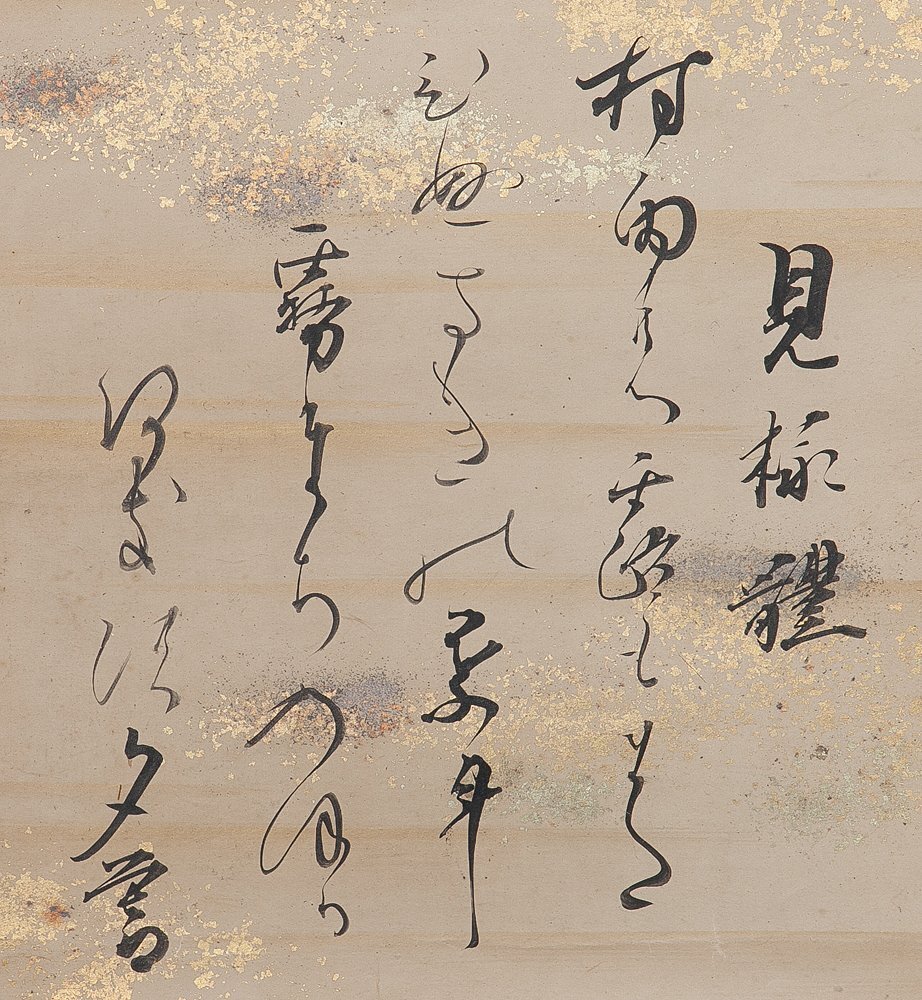 見様體
村雨の露もまた
ひぬまきの葉耳
霧たちのほる
あきの夕暮